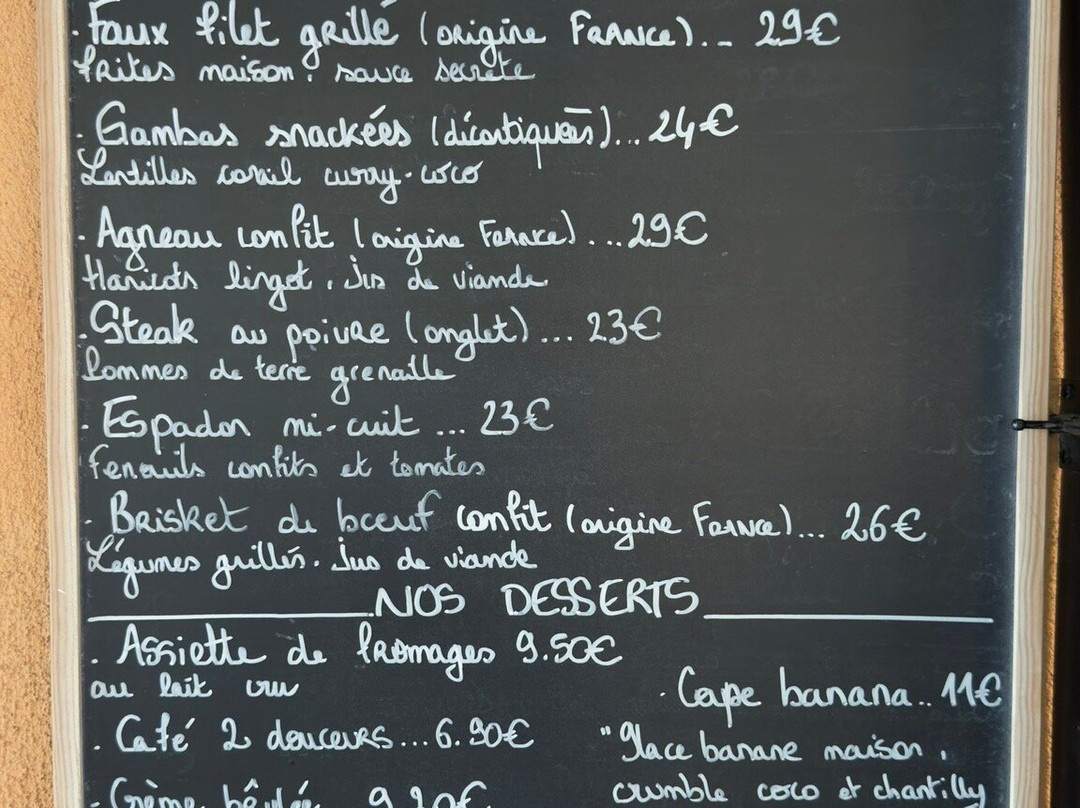 . Faux filet grillé (origine FRANCE).. 29€
frites maison. sauce secrète
. Gambas snackées (décortiquées)... 24€
Lentilles corail curry-coco
. Agneau confit (origine France)... 29€
Haricots lingot, Jus de viande
. Steak au poivre (onglet)... 23€
Pommes de terre grenaille
. Espadon mi-cuit ... 23€
fenouils confits et tomates
. Brisket de bœuf confit (origine France)... 26€
Légumes grillés. Jus de viande
NOS DESSERTS
. Assiette de fromages 9.50€
au lait cru
. Café 2 douceurs...6.90€
. Crème brûlée 9.20€
. Coupe banana.. 11€
"Glace banane maison,
crumble coco et chantilly